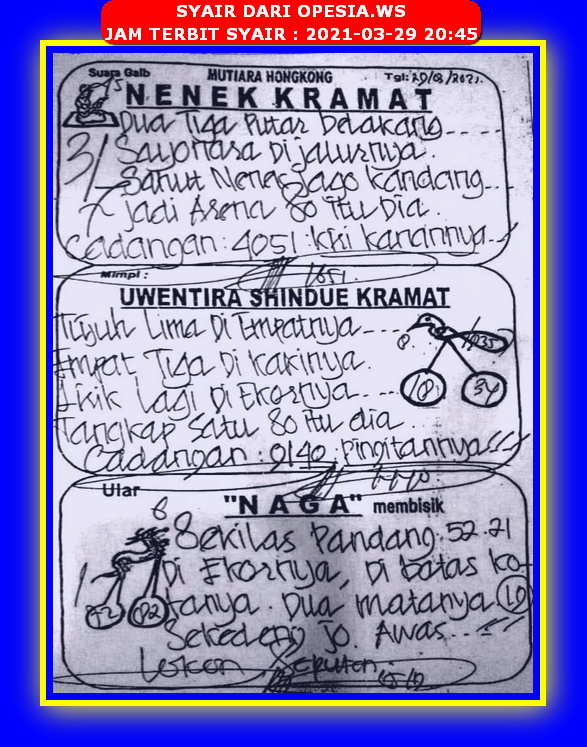 SYAIR DARI OPESIA.WS
JAM TERBIT SYAIR : 2021-03-29 20:45
Suara Gaib
MUTIARA HONGKONG
Tgl: 29/03/2021.
NENEK KRAMAT
Dua Tiga Putar Belakang
Sayonara Di jalurnya.
Sahut Nenas Jago Kandang
Jadi Arena 80 itu Dia.
Cadangan : 4051 : kiri kanannya
1651
Mimpi :
UWENTIRA SHINDUE KRAMAT
Tujuh Lima Di Empatnya
Empat Tiga Di kakinya.
Lirik Lagi Di Ekornya
Tangkap Satu 80 itu dia.
Cadangan : 0140 : Pingitannya
18
34
Ular
"NAGA" membisik
Sekilas Pandang. 52.21
Di Ekornya, Di batas ko-
tanya. Dua matanya
Sekedeng Jo. Awas